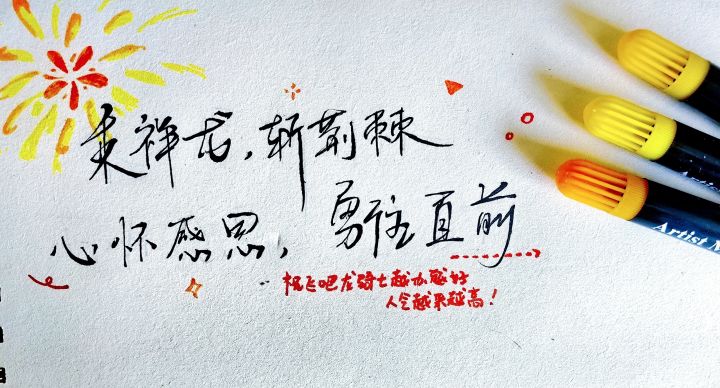 乘祥龙，斩荆棘
心怀感恩，勇往直前
祝飞吧龙骑士越办越好
人气越来越高！
Artist M